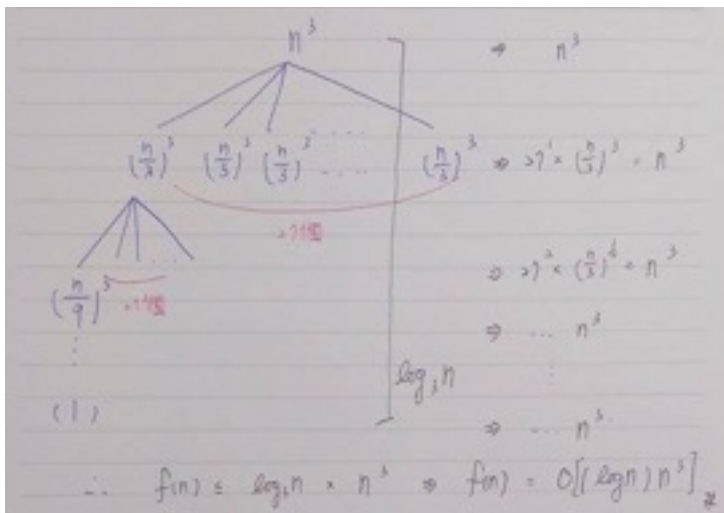 n³ ⇒ n³
(n/3)³ (n/3)³ (n/3)³ .... (n/3)³ ⇒ 27¹ × (n/3)³ = n³
27個
⇒ 27² × (n/3)⁶ = n³
(n/9)³ 27個
⇒ ... n³
log₃n
(1) ⇒ ... n³
∴ f(n) ≤ log₃n × n³ ⇒ f(n) = O[(logn)n³]